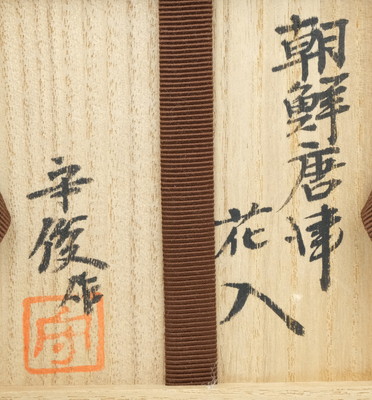 朝鮮唐津
花入
辛俊作